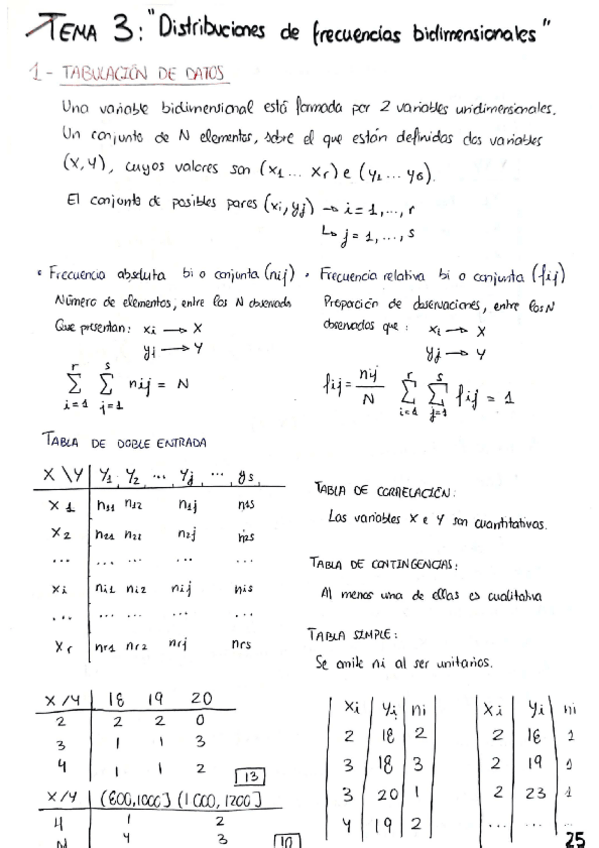 TEMA 3: "Distribuciones de frecuencias bidimensionales"
1- TABULACIÓN DE DATOS
Una variable bidimensional está formada por 2 variables unidimensionales.
Un conjunto de N elementos, sobre el que están definidas dos variables
(X,Y), cuyos valores son (x1 ... xr) e (y1 ... ys).
El conjunto de posibles pares (xi, yj) → i = 1,..., r
↳ j = 1,..., s
• Frecuencia absoluta bi o conjunta (nij)
Número de elementos, entre los N observada
Que presentan: xi → X
yj → Y
r s
Σ Σ nij = N
i=1 j=1
• Frecuencia relativa bi o conjunta (fij)
Proporción de observaciones, entre los N
observados que : xi → X
yj → Y
fij = nij / N
r s
Σ Σ fij = 1
i=1 j=1
TABLA DE DOBLE ENTRADA
X \ Y | Y1 Y2 ... Yj ... ys
X1 | n11 n12 n1j n1s
X2 | n21 n22 n2j n2s
... ... ... ... ...
Xi | ni1 ni2 nij nis
... ... ... ... ...
Xr | nr1 nr2 nrj nrs
TABLA DE CORRELACIÓN:
Las variables X e Y son cuantitativas.
TABLA DE CONTINGENCIAS:
Al menos una de ellas es cualitativa
TABLA SIMPLE:
Se omite ni al ser unitarios.
X/Y | 18 19 20
2 | 2 2 0
3 | 1 1 3
4 | 1 1 2
13
X/Y | (800,1000] (1000, 1200]
4 | 1 2
N | 4 3
10
Xi | Yj | ni
2 | 18 | 2
3 | 18 | 3
3 | 20 | 1
4 | 19 | 2
Xi | Yi | ni
2 | 18 | 1
2 | 19 | 1
2 | 23 | 1
... | ... | ...
25